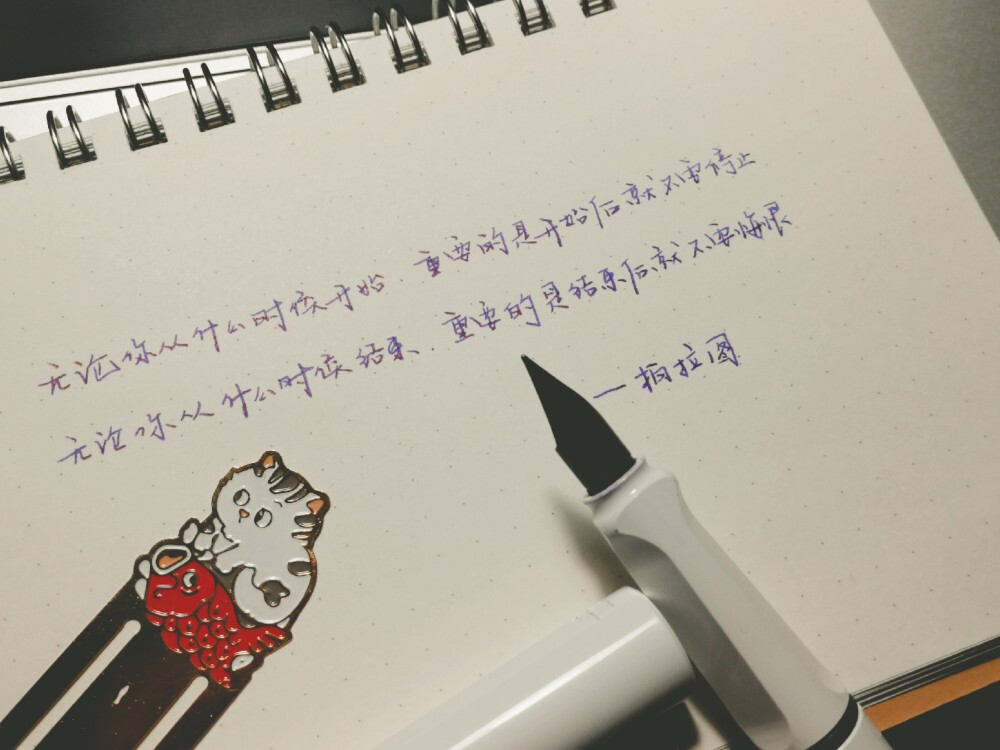 无论你从什么时候开始．重要的是开始后就不要停止
无论你从什么时候结束．重要的是结束后就不要悔恨
——柏拉图